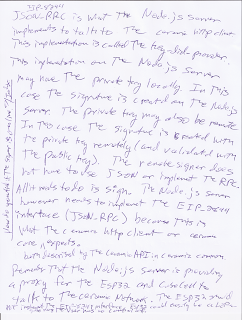 EIP-2844
JSON-RPC is what the Node.js server
implements to talk to the ceramic http client
This implementation is called the key did provider.
This implementation on the Node.js server
may have the private key locally. In this
case the signature is created on the Node.js
server. The private key may also be remote
In this case the signature is created with
the private key remotely (and validated with
the public key). The remote signer does
not have to use JSON or implement the RPC
All it needs to do is sign. The Node.js server
however needs to implement the EIP-2844
interface (JSON-RPC) because this is
what the ceramic http client or ceramic
core, expects.
both described by the Ceramic API in ceramic common
Remember that the Node.js server is providing
a proxy for the ESP32 and is used to
talk to the ceramic network. The ESP32 could